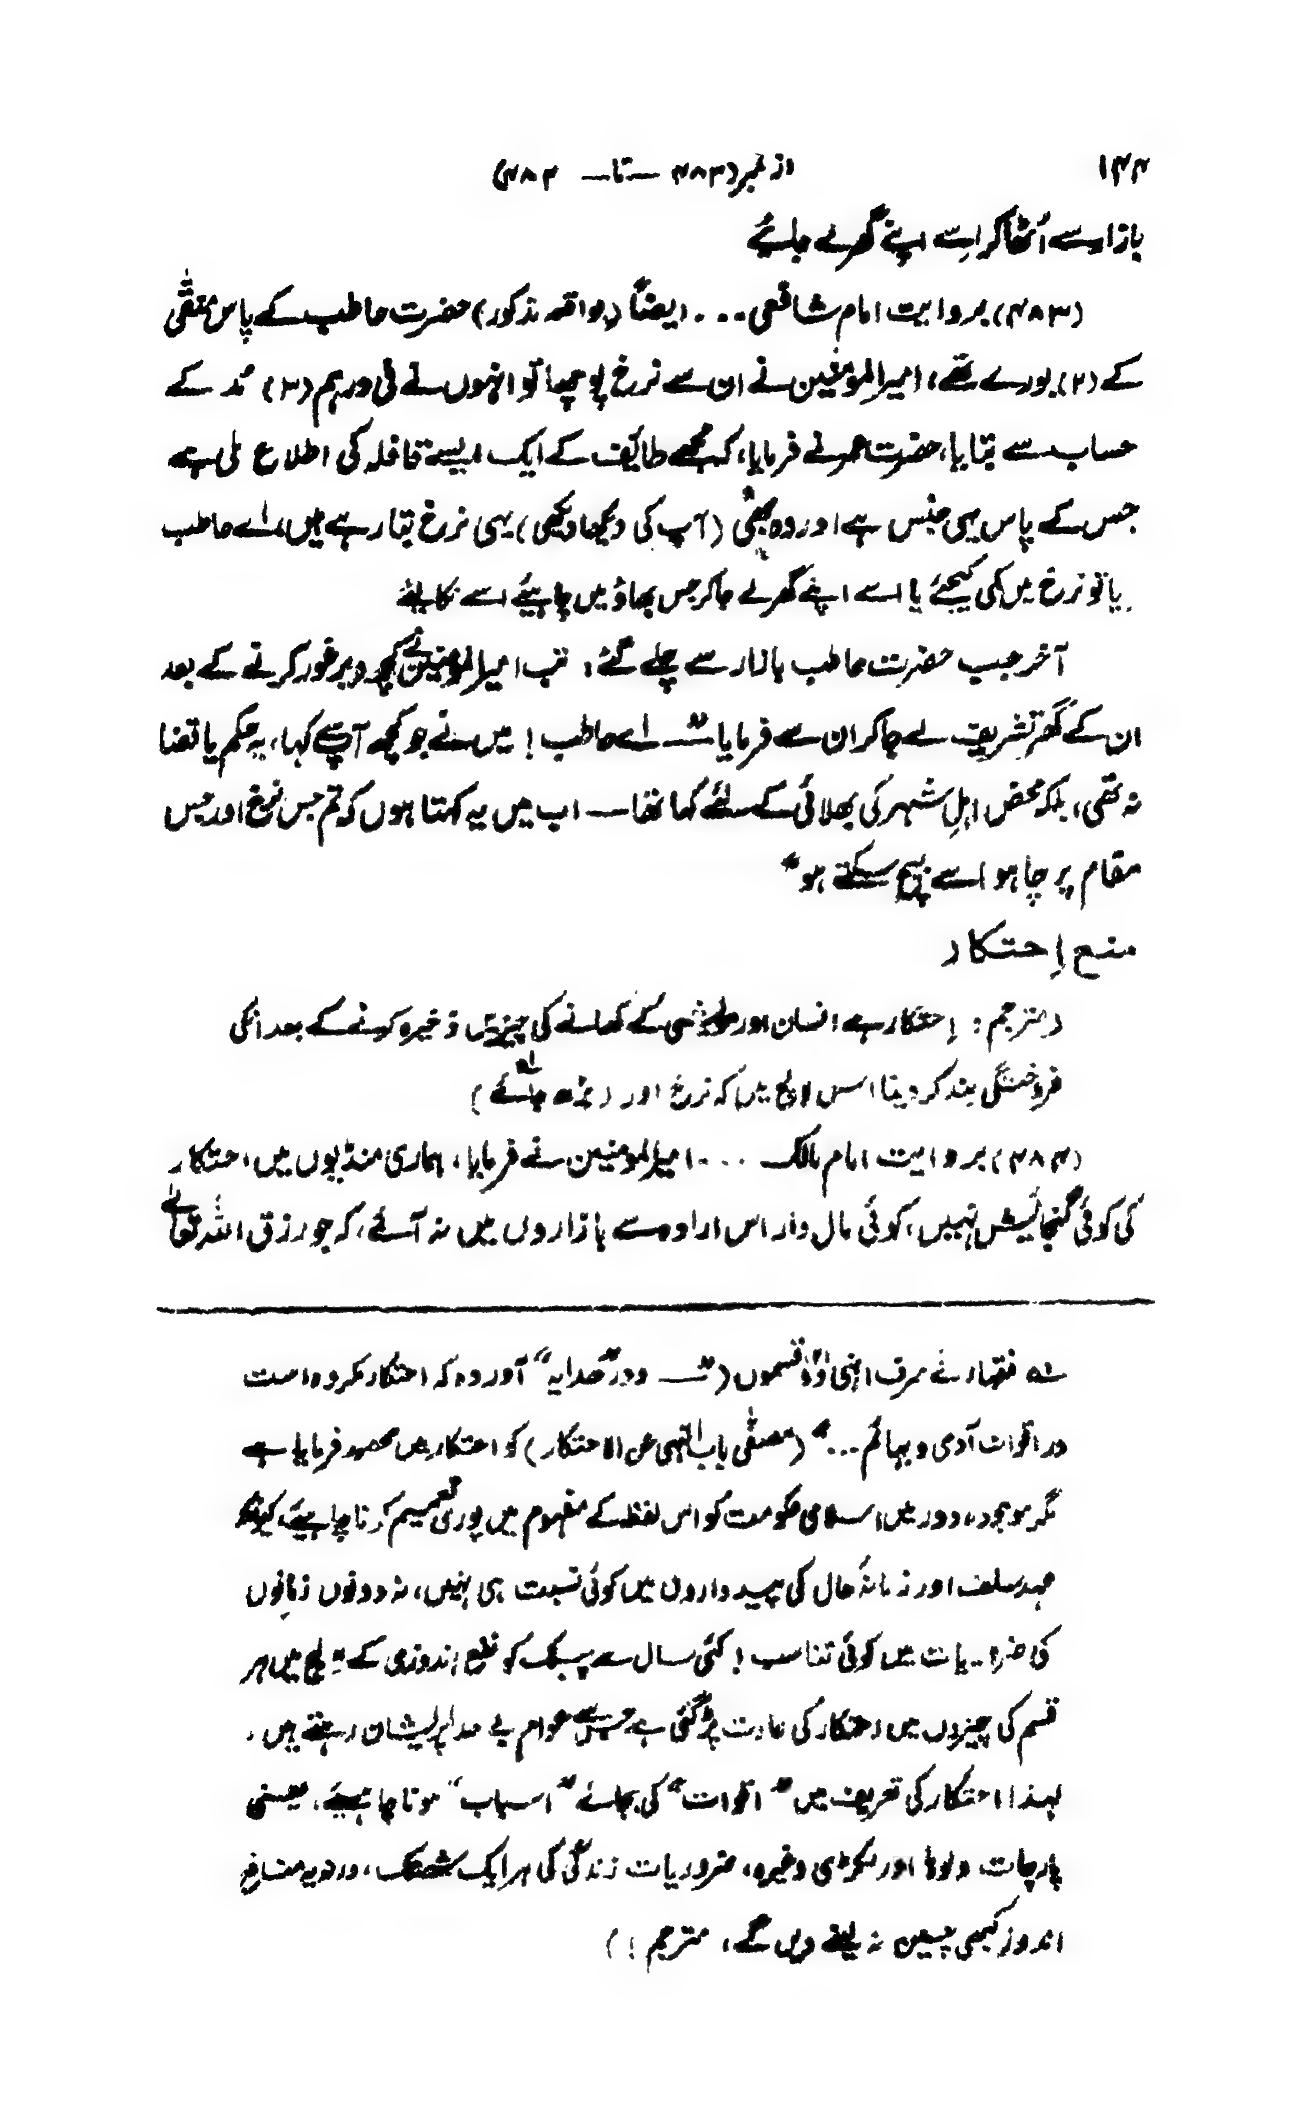 ۱۴۴ از نمبر (۴۸۳ — تا — ۴۸۴)
بازار سے اُٹھا کر اِسے اپنے گھر لے جائیے
(۴۸۳) بروایت امام شافعی ... ایضاً (بواقعہ مذکور) حضرت حاطب کے پاس منقّٰی
کے (۲) بورے تھے، امیرالمومنین نے ان سے نرخ پوچھا تو انہوں نے فی درہم (۲) مُد کے
حساب سے بتایا، حضرت عمر نے فرمایا، کہ مجھے طائف کے ایک ایسے قافلہ کی اطلاع ملی ہے
جس کے پاس یہی جنس ہے اور وہ بھی (آپ کی دیکھا دیکھی) یہی نرخ بتا رہے ہیں، اے حاطب
یا تو نرخ میں کمی کیجئے یا اسے اپنے گھر لے جا کر جس بھاؤ میں چاہیئے اسے نکالئے
آخر جب حضرت حاطب بازار سے چلے گئے، تب امیرالمومنین نے کچھ دیر غور کرنے کے بعد
ان کے گھر تشریف لے جا کر ان سے فرمایا — "اے حاطب! میں نے جو کچھ آپ سے کہا، یہ حکم یا قضا
نہ تھی، بلکہ محض اہلِ شہر کی بھلائی کے لئے کہا تھا — اب میں یہ کہتا ہوں کہ تم جس نرخ اور جس
مقام پر چاہو اسے بیچ سکتے ہو"
منع اِحتکار
(مترجم: اِحتکار ہے انسان اور مویشی کے کھانے کی چیزیں ذخیرہ کرنے کے بعد انکی
فروختگی بند کر دینا اس لالچ میں کہ نرخ اور (بڑھ جائے)
(۴۸۴) بروایت امام مالک ... امیرالمومنین نے فرمایا، ہماری منڈیوں میں احتکار
کی کوئی گنجائیش نہیں، کوئی مال دار اس ارادہ سے بازاروں میں نہ آئے، کہ جو رزق اللہ تعالےٰ
لہ فقہاء نے صرف انہی دو قسموں ("— ودر "ھدایہ" آوردہ کہ احتکار مکروہ است
در اقوات آدمی و بہائم ..." (مصفّٰی باب النہی عن الاحتکار) کو احتکار میں محصور فرمایا ہے
مگر موجودہ دور میں اسلامی حکومت کو اس لفظ کے مفہوم میں پوری تعمیم کرنا چاہیئے، کیونکہ
عہد سلف اور زمانۂ حال کی پیداواروں میں کوئی نسبت ہی نہیں، نہ دونوں زمانوں
کی ضروریات میں کوئی تناسب! کئی سال سے پبلک کو نفع اندوزی کے لالچ میں ہر
قسم کی چیزوں میں احتکار کی عادت پڑ گئی ہے جس سے عوام بے حد پریشان رہتے ہیں،
لہذا احتکار کی تعریف میں "اقوات" کی بجائے "اسباب" ہونا چاہیئے، یعنی
پارچات، لوہا اور لکڑی وغیرہ، ضروریات زندگی کی ہر ایک شے تک، ورنہ یہ منافع
اندوز کبھی چین نہ لینے دیں گے، مترجم!)